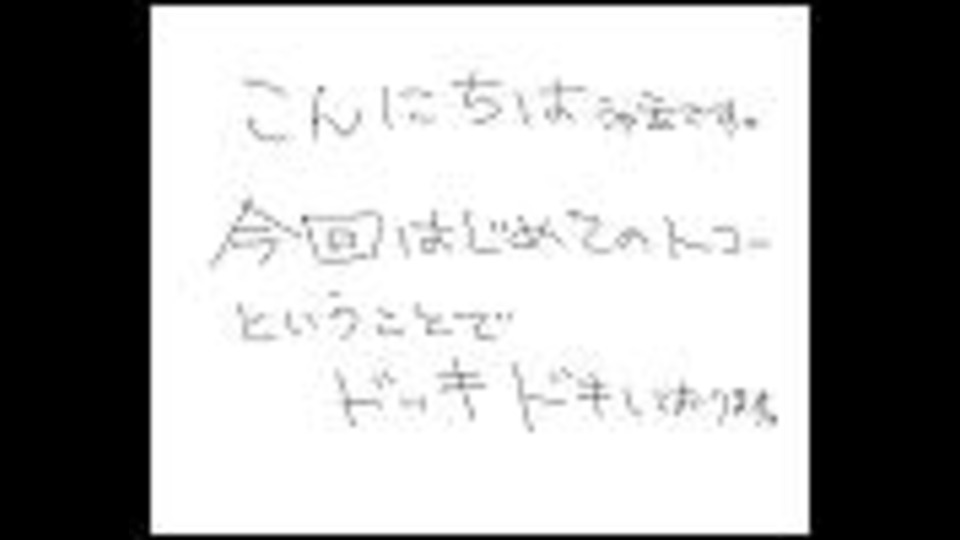 こんにちは です。
今回はじめてのトコー
ということで
ドッキドキしております。